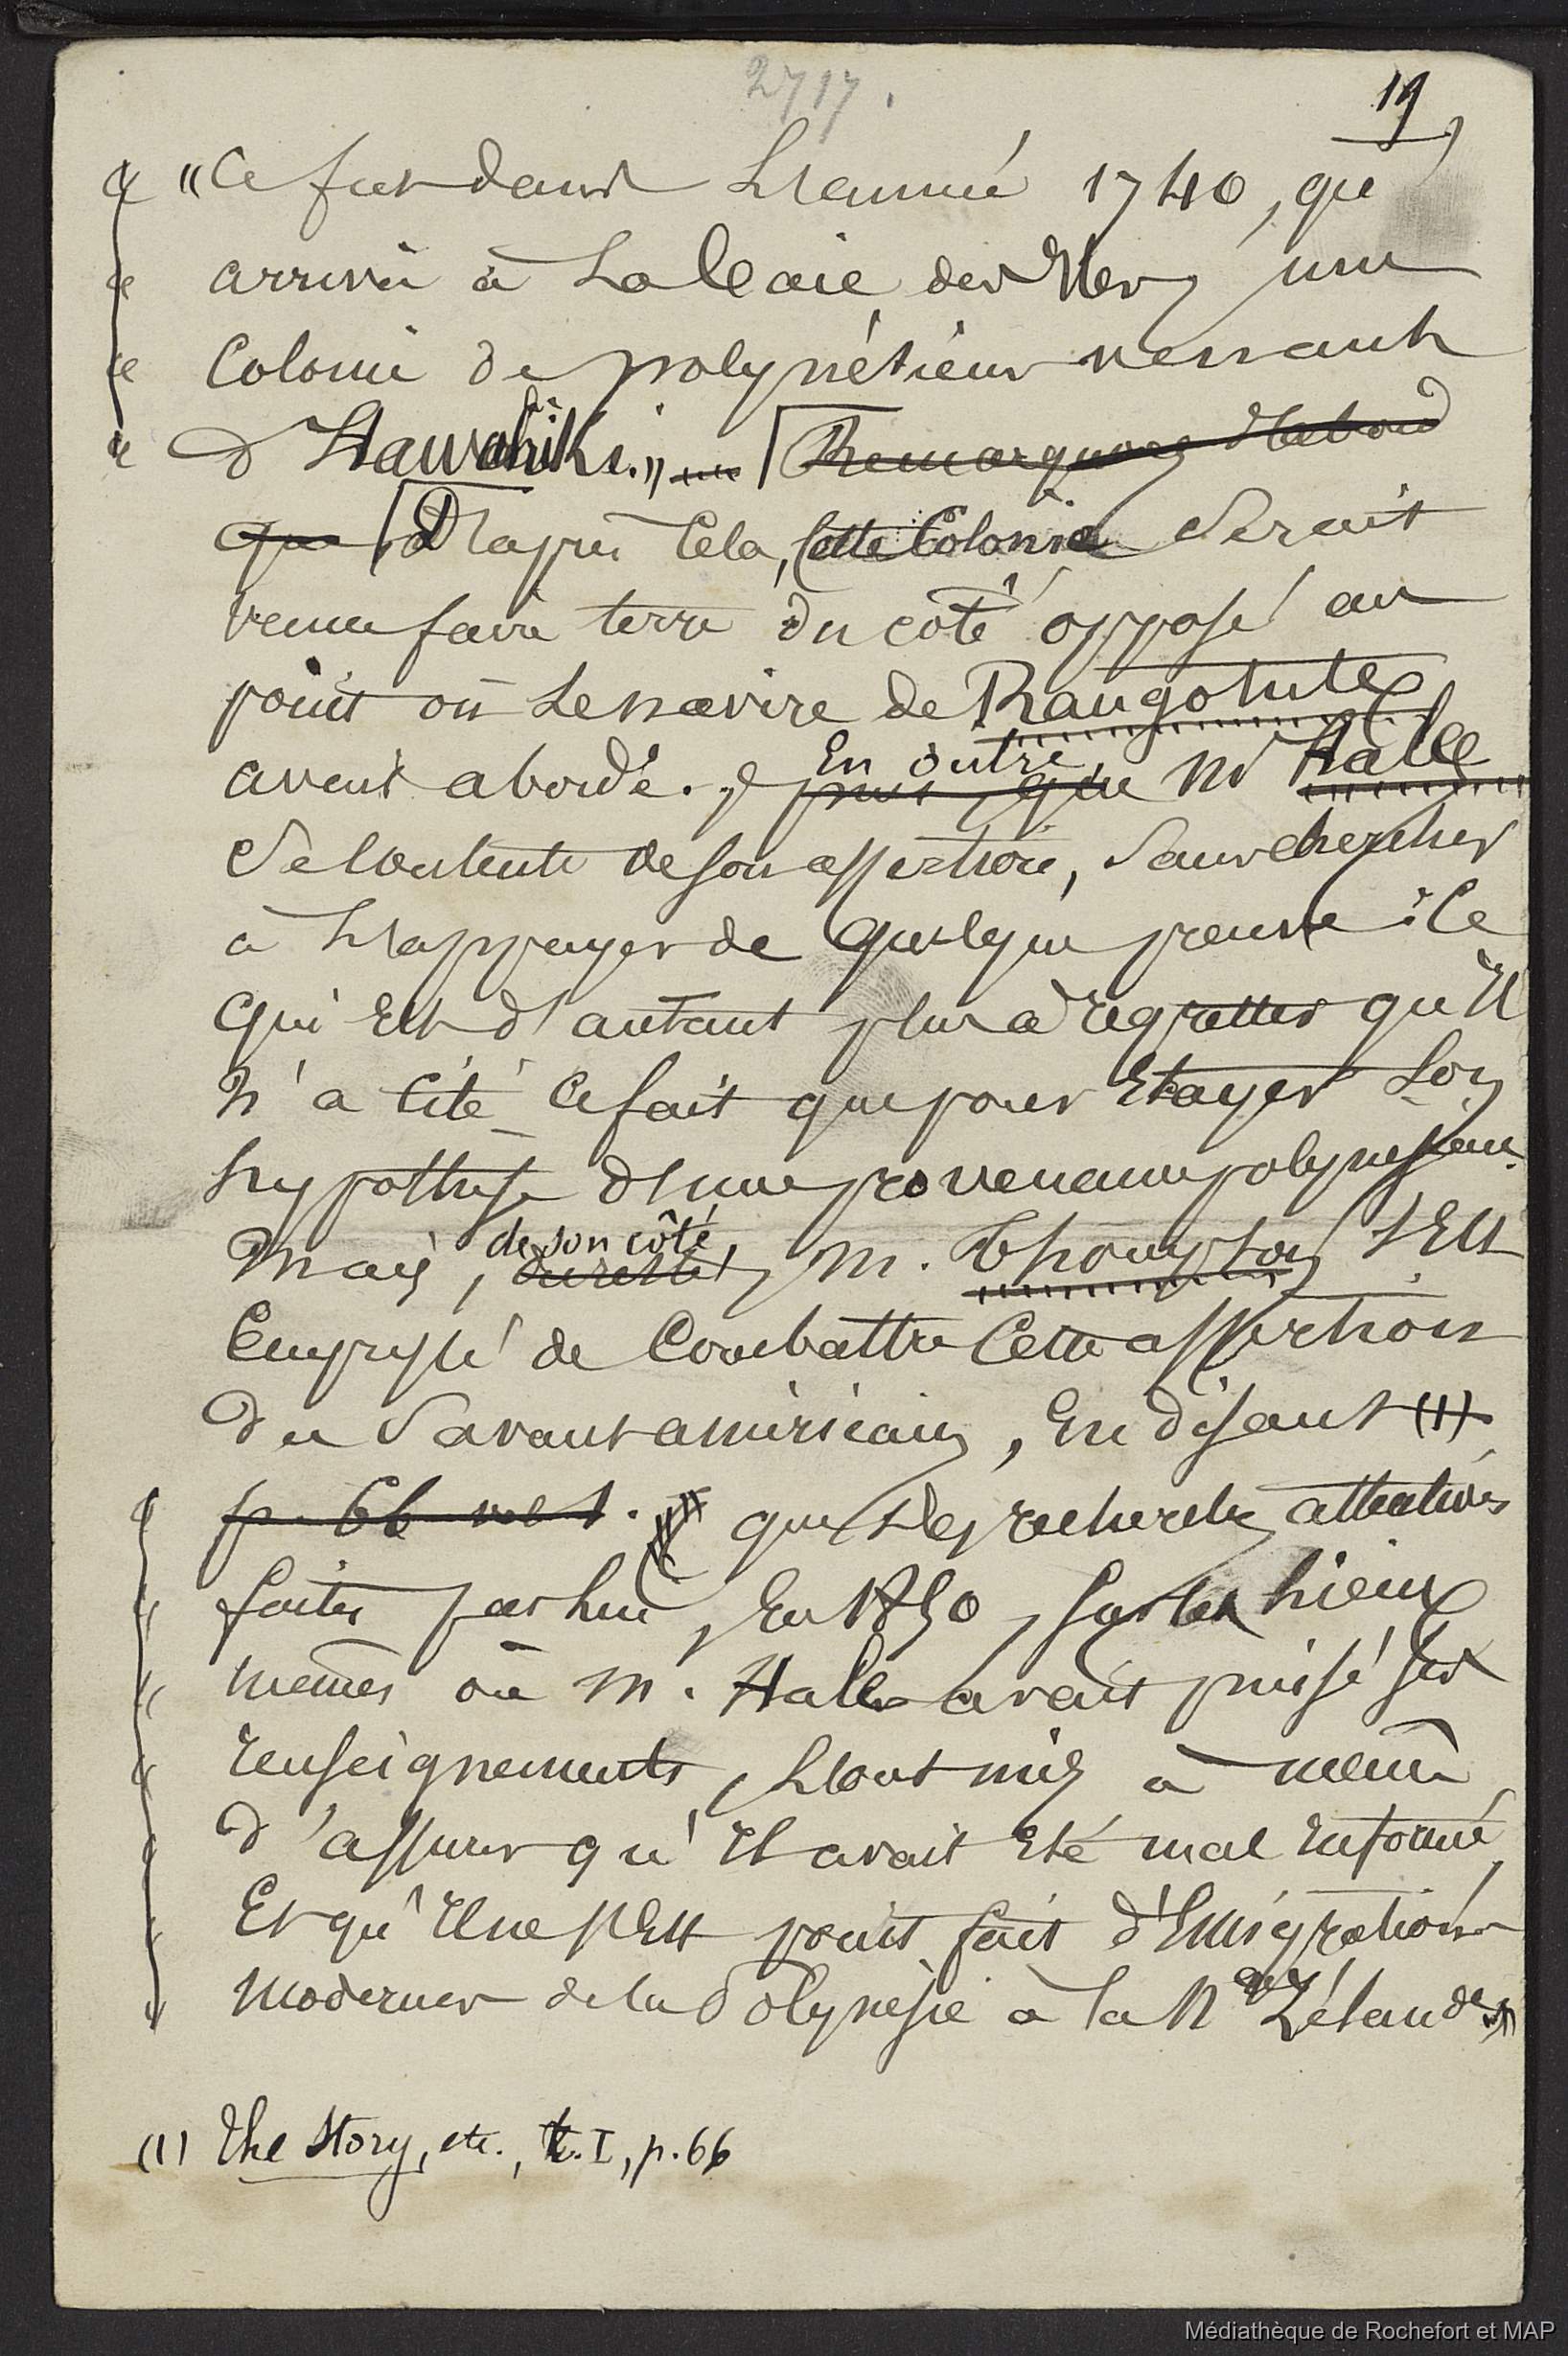 2717.
19
"Ce fut dans l'année 1740, que
arriva à la baie des Iles, une
Colonie de polynésiens venant
d'Hawahiki." Remarquons d'abord
que D'après cela, cette Colonie serait
venue faire terre du côté opposé au
point où le navire de Rangotute
avait abordé. En outre, Mr Hale
se contente de son assertion, sans chercher
à l'appuyer de quelque preuve : Ce
qui est d'autant plus à regretter qu'il
n'a cité ce fait que pour étayer son
hypothèse d'une provenance polynésienne.
Mais, de son côté, du reste, M. Thompson s'est
empressé de combattre cette assertion
du savant américain, en disant (1)
p. 66 vol 1. " que des recherches attentives
faites par lui, en 1850, sur les lieux
mêmes où M. Hale avait puisé ses
renseignements, l'ont mis à même
d'assurer qu'il avait été mal informé,
et qu'il ne s'est point fait d'émigrations
modernes de la Polynésie à la Nlle Zélande"
(1) The Story, etc., t. I, p. 66
Médiathèque de Rochefort et MAP